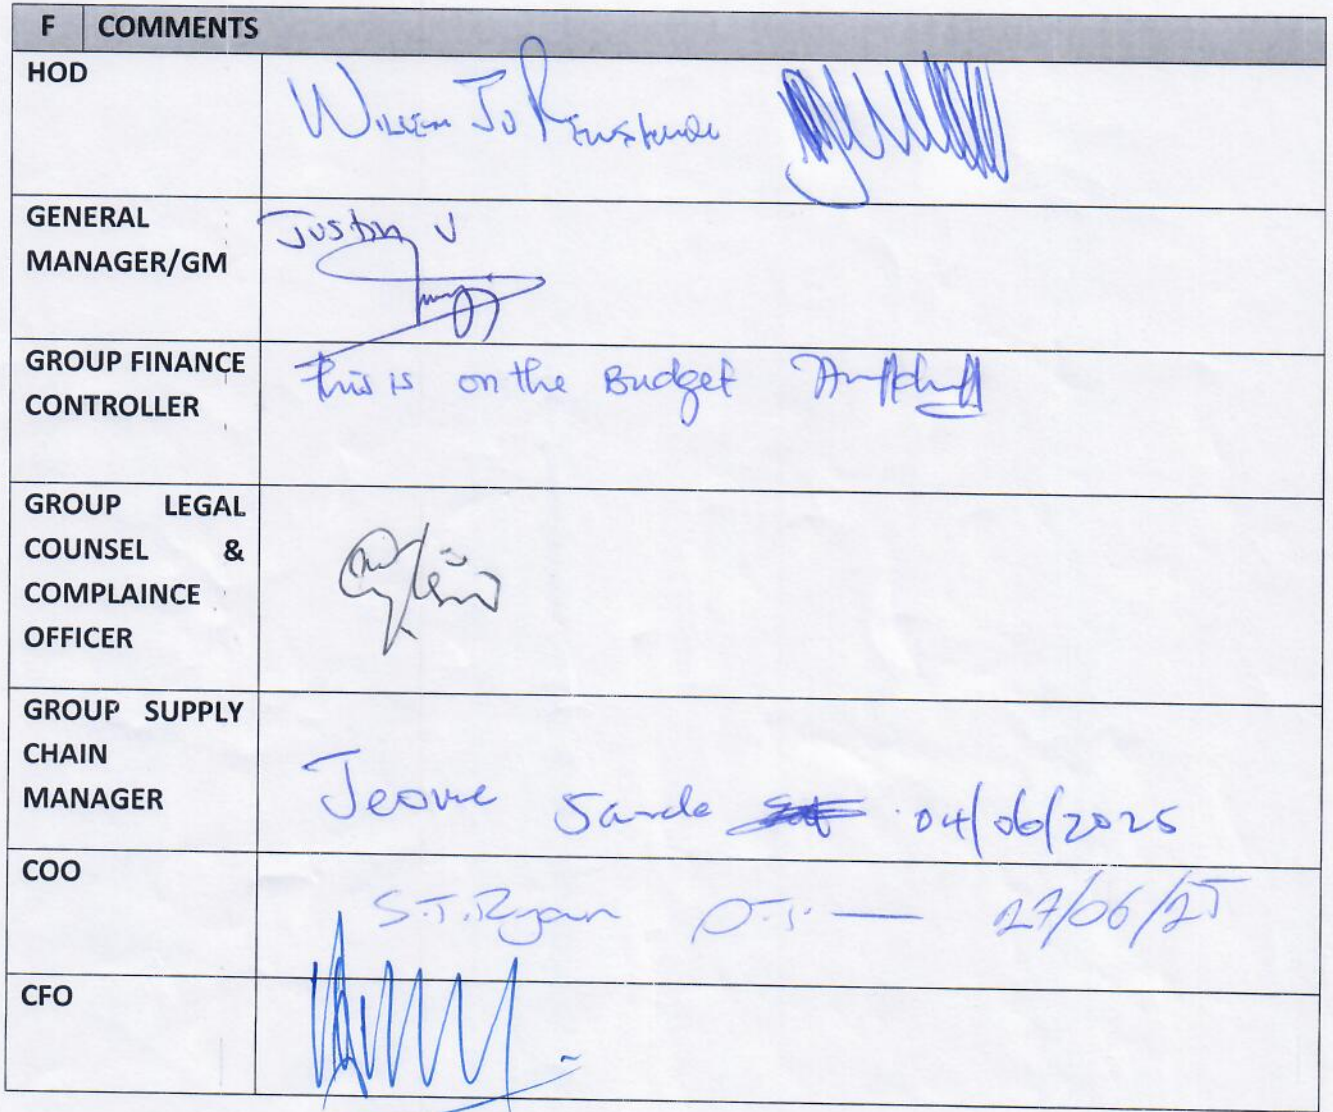 F COMMENTS
HOD
Willem Jv
GENERAL
MANAGER/GM
Justin V
GROUP FINANCE
CONTROLLER
This is on the Budget
GROUP LEGAL
COUNSEL &
COMPLAINCE
OFFICER
GROUP SUPPLY
CHAIN
MANAGER
04/06/2025
COO
S.T.Ryan 27/06/25
CFO